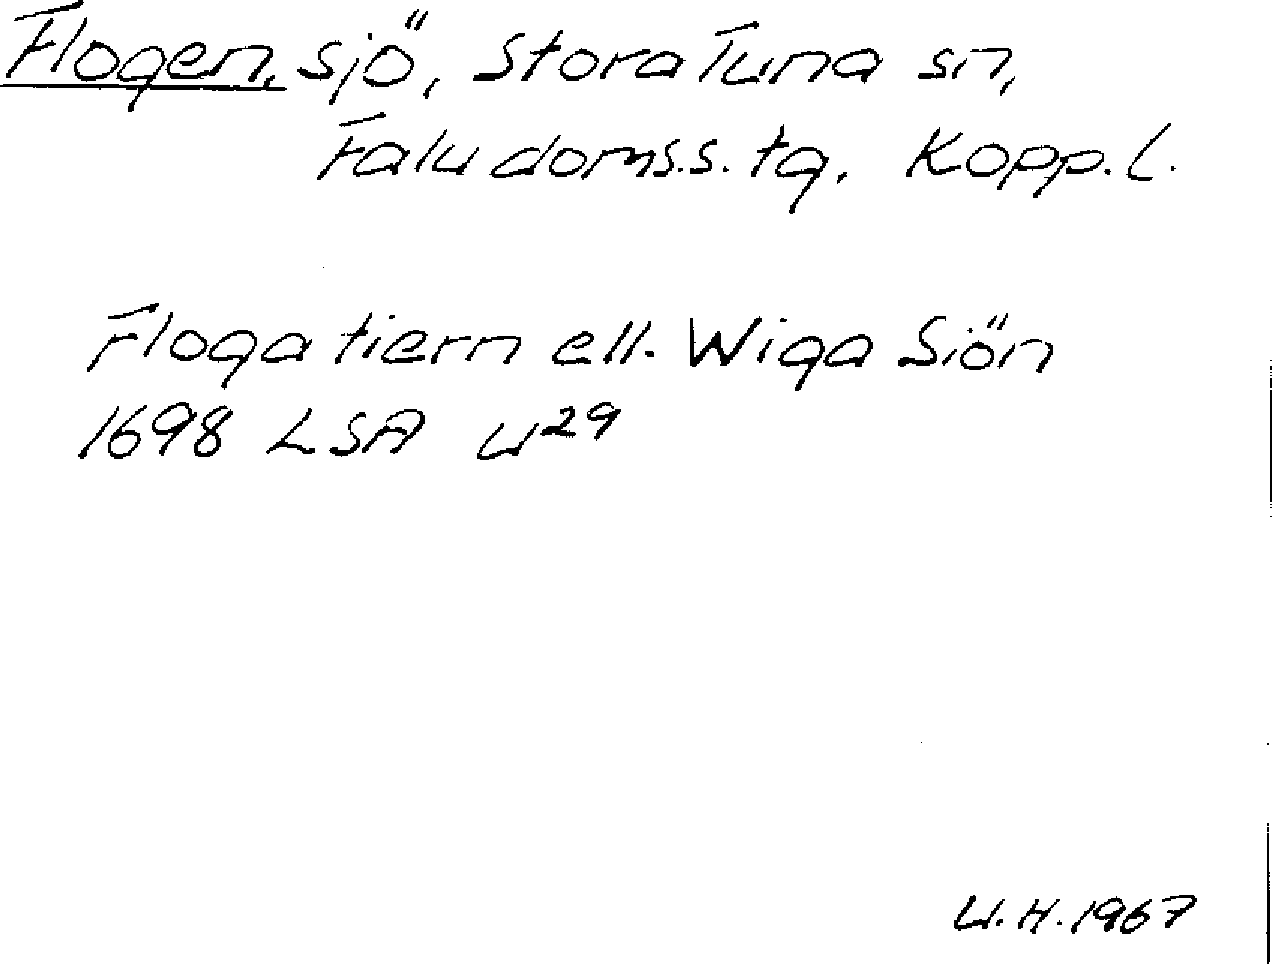 Flogen, sjö, Stora Tuna sn,
Falu doms.s. tg, Kopp. l.
Floga tiern ell. Wiga Siön
1698 LSA W²⁹
W.H. 1967